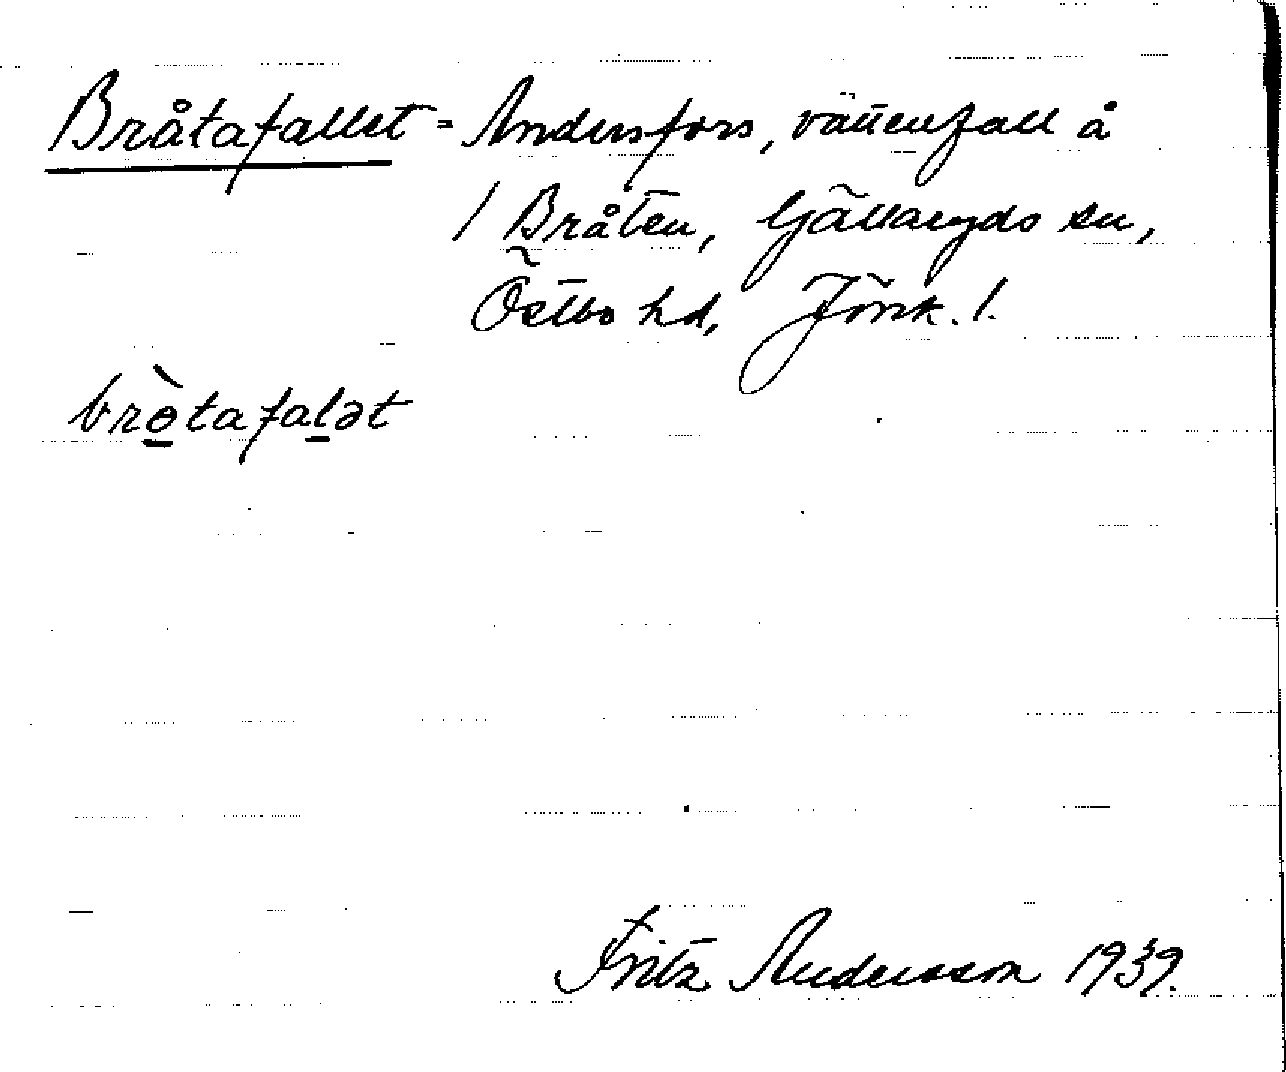 Bråtafallet = Andersfors, vattenfall å
/ Bråten, Gällaryds sn,
Östbo hd, Jönk. l.
bròtafalət
Fritz Andersson 1939.